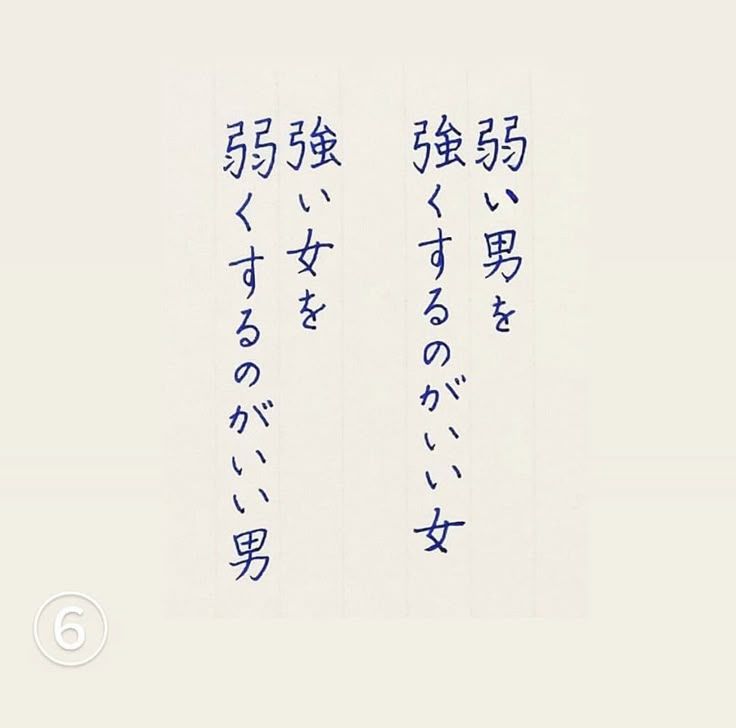 弱い男を
強くするのがいい女
強い女を
弱くするのがいい男
6